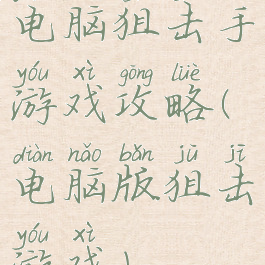 电脑狙击手
yóu xì gōng lüè
游戏攻略(
diàn nǎo bǎn jū jī
电脑版狙击
yóu xì
游戏)